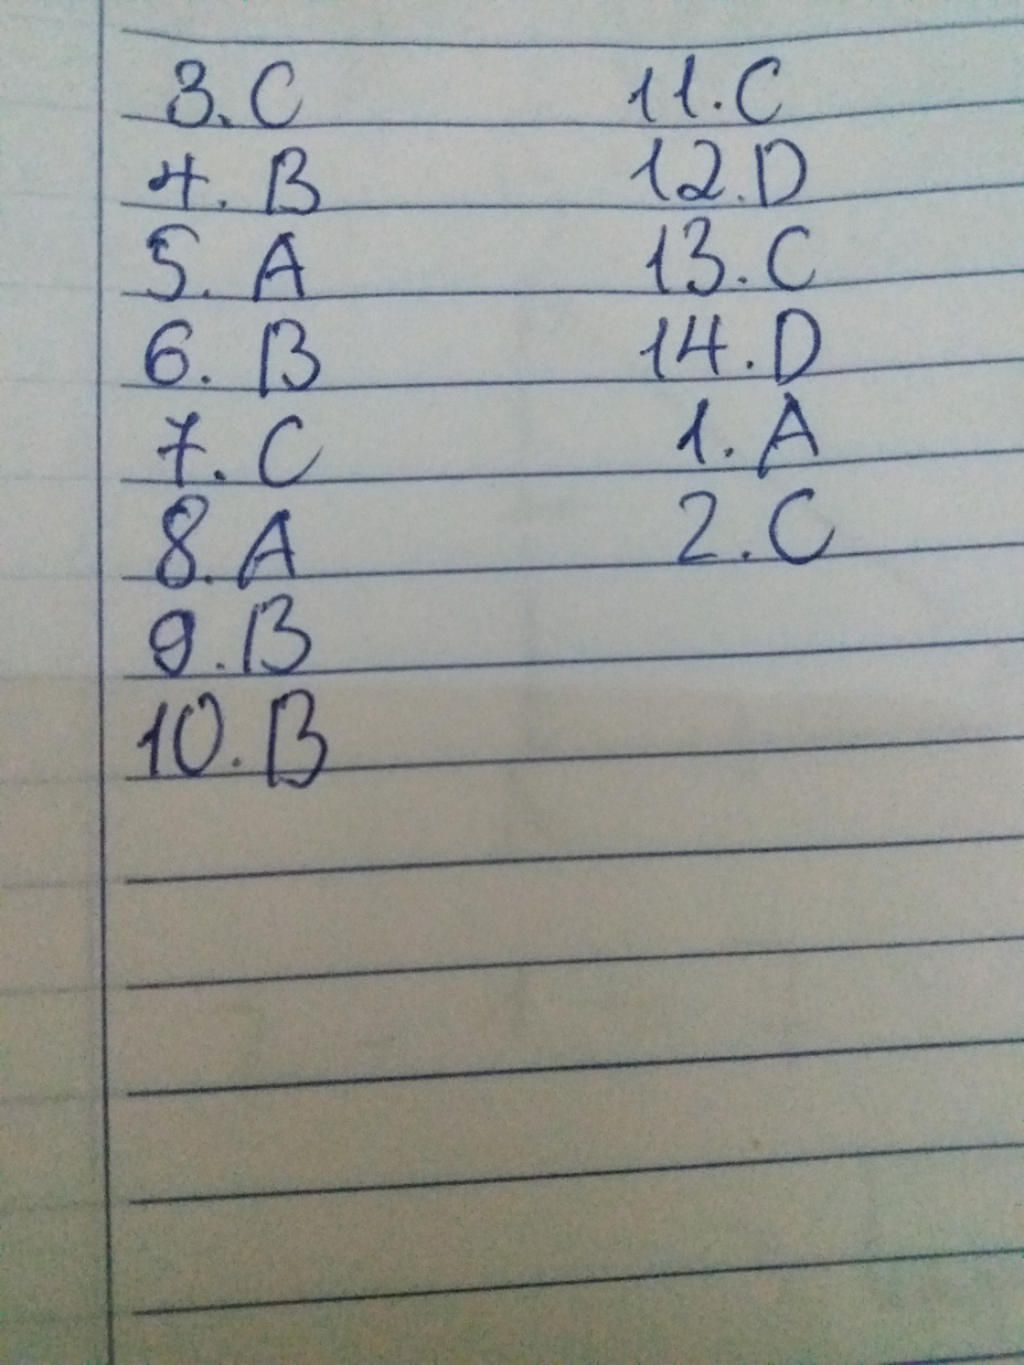 3. C
4. B
5. A
6. B
7. C
8. A
9. B
10. B
11. C
12. D
13. C
14. D
1. A
2. C